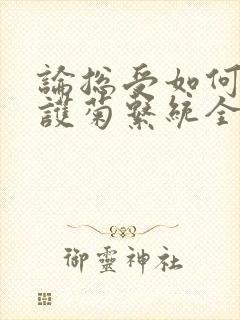 論总受如何
護菊繫統全
御靈神社